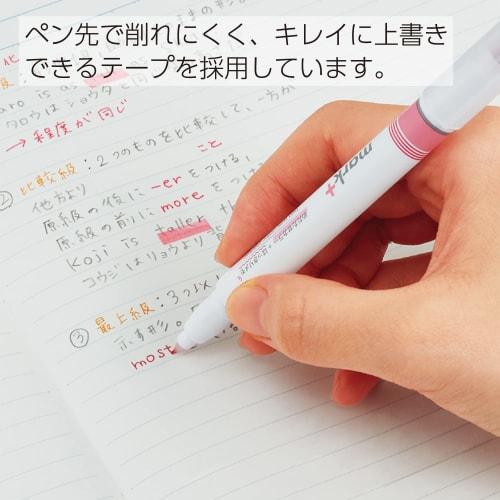 ペン先で削れにくく、キレイに上書き
できるテープを採用しています。
タロウはショウタと
→程度が同じ
② 比較級：2つのものを比較して、一方が
他方より こと
原級の後に -er をつける。
原級の前に more をつける
Koji is taller th
コウジはリョウより背
③ 最上級：3つ以
示す形。
most
mark+